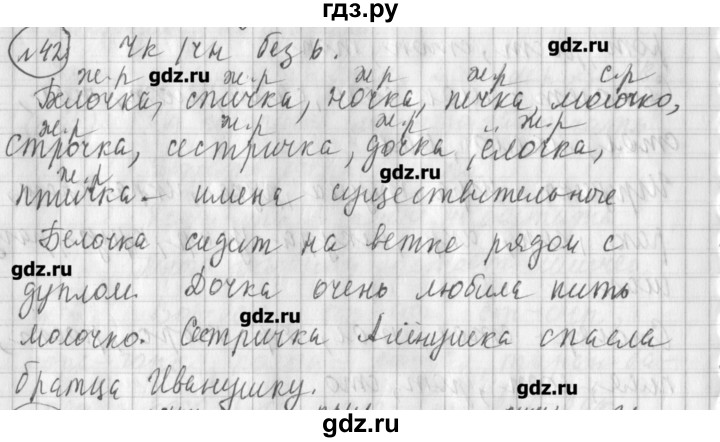 гдз.ру
№42 Чк/чн без ь.
ж.р ж.р ж.р ж.р с.р
Белочка, спичка, ночка, печка, молочко,
ж.р ж.р ж.р ж.р
строчка, сестричка, дочка, ёлочка,
ж.р
птичка – имена существительные
Белочка сидит на ветке рядом с
дуплом. Дочка очень любила пить
молочко. Сестричка Алёнушка спасла
братца Иванушку.
gdz.ru
gdz.ru
gdz.ru
gdz.ru
gdz.ru
gdz.ru
gdz.ru
гдз.ру